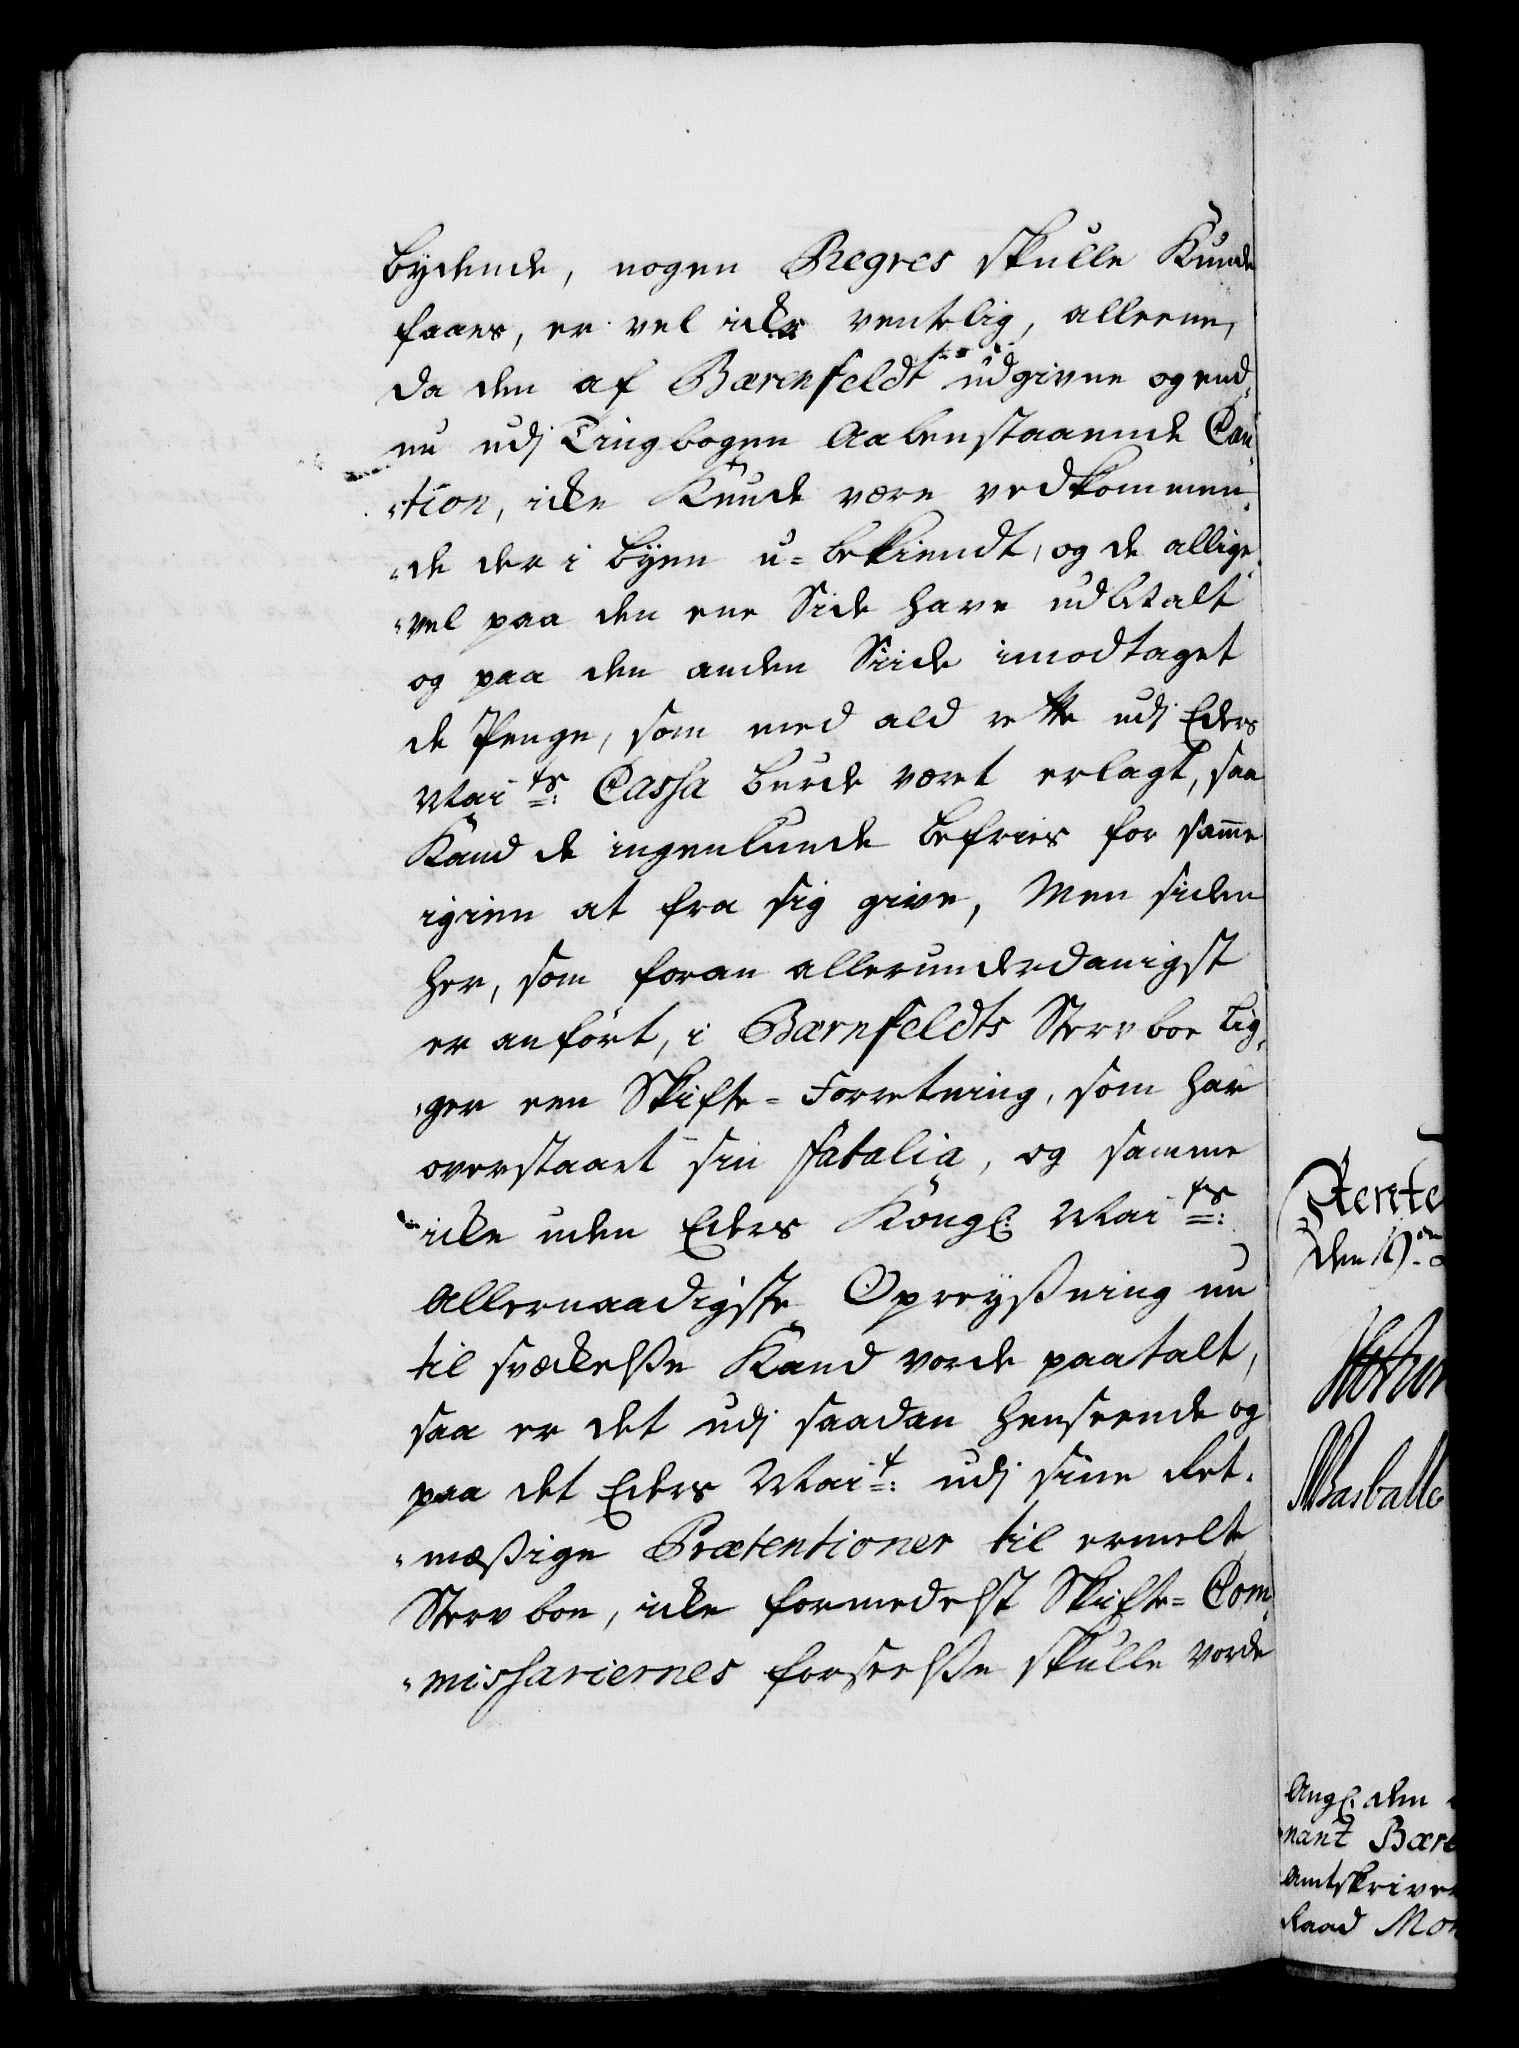 bydende, nogen Regres skulle Kunde
faaes, er vel icke ventelig, alleene,
da den af Bærenfeldt udgivne og end-
nu udj Tingbogen Aabenstaaende Cau-
tion, icke Kunde være vedkommen-
de der i byen u-bekiendt, og de allige-
vel paa den ene Side have udbetalt
og paa den anden Siide imodtaget
de Penge, som med ald rette udj Eders
Maits: Cassa burde været erlagt, saa
Kand de ingenlunde befries for samme
igien at fra sig give, Men siden
her, som foran allerunderdanigst
er anført, i Bærnfeldts Sterv boe lig-
ger een Skifte-Forretning, som har
overstaaet sin fatalia, og samme
icke uden Eders Kongl: Maits:
Allernaadigste Opreyßning nu
til svækelsße Kand vorde paatalt,
saa er det udj saadan henseende og
paa det Eders Mait: udj sine Ret-
mæßige Prætentioner til ermelte
Sterv boe, icke formedelst Skifte-Com-
missariernes forseelsße skulle vorde
Rente
den 19de
Basballe
Angl: den
nant Bære
Amtskriver
Raad Mo